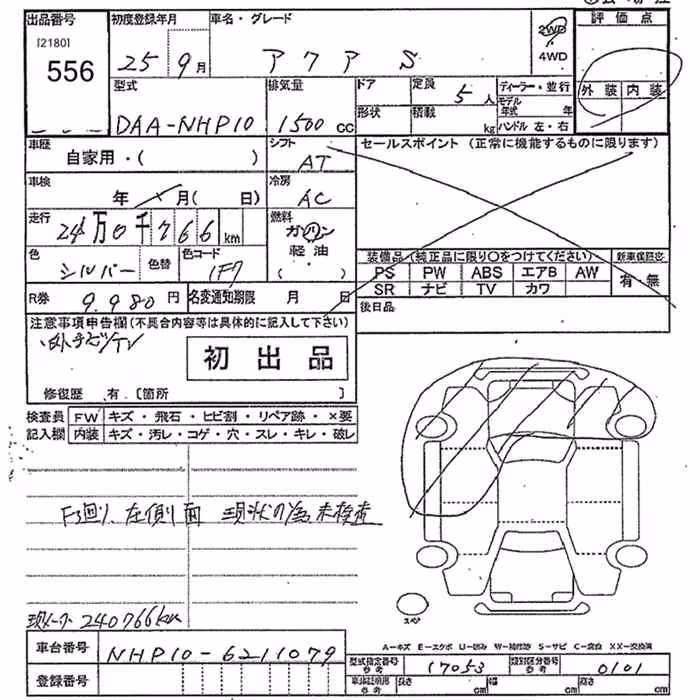 出品番号 初度登録年月 車名・グレード 評価点
[2180] 25 9月 アクア S 2WD
4WD
556
型式 排気量 ドア 定員 5人 ディーラー・並行 外装 内装
モデル年式 年
DAA-NHP10 1500cc 形状 積載 kg ハンドル 左・右
車歴 シフト セールスポイント (正常に機能するものに限ります)
自家用・( ) AT
車検 冷房
年 月( 日) AC
走行 燃料
24万0千766km ガソリン
軽油
色 色替 色コード (・) 装備品(純正品に限り○をつけてください) 新車保証書
シルバー 1F7 PS PW ABS エアB AW 有・無
R券 9,980円 名変通知期限 月 日 SR ナビ TV カワ
後日品
注意事項申告欄(不具合内容等は具体的に記入して下さい)
初出品
修復歴 有.〔箇所 〕
検査員 FW キズ・飛石・ヒビ割・リペア跡・×要
記入欄 内装 キズ・汚レ・コゲ・穴・スレ・キレ・破レ
F廻り、左側面 現状の為未検査
スペア
現メーター240766km
A-キズ E-エクボ U-凹み W-補修跡 S-サビ C-腐食 XX-交換済
車台番号 NHP10-6211079 型式指定番号 参考 17053 類別区分番号 参考 0101
登録番号 長さ cm 幅 cm 高さ cm